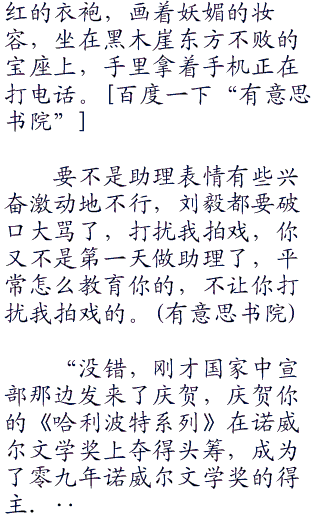 红的衣袍，画着妖媚的妆
容，坐在黑木崖东方不败的
宝座上，手里拿着手机正在
打电话。[百度一下“有意思
书院”]
要不是助理表情有些兴
奋激动地不行，刘毅都要破
口大骂了，打扰我拍戏，你
又不是第一天做助理了，平
常怎么教育你的，不让你打
扰我拍戏的。(有意思书院)
“没错，刚才国家中宣
部那边发来了庆贺，庆贺你
的《哈利波特系列》在诺威
尔文学奖上夺得头筹，成为
了零九年诺威尔文学奖的得
主．··